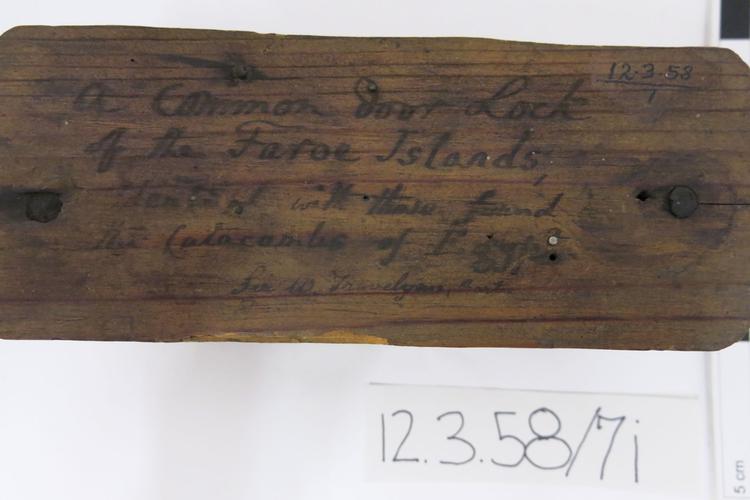 12.3.58
1
A Common Door Lock
of the Faroe Islands,
identical with those found
the Catacombs of Egypt
Sir W. Trevelyan, Bart
12.3.58/7i
5 cm